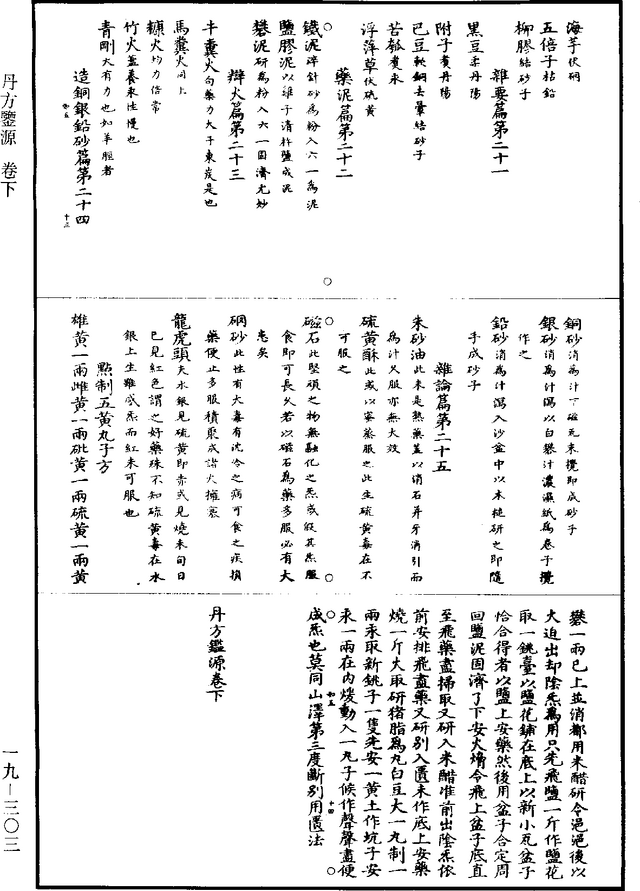 海芋伏硇
五倍子粘鉛
柳膠結砂子
雜要篇第二十一
黑豆柔丹陽
附子煮丹陽
巴豆軟銅去暈結砂子
苦瓠煮汞
浮萍草伏硫黃
藥泥篇第二十二
鐵泥碎針砂為粉入六一為泥
鹽膠泥以雞子清杵鹽成泥
礬泥研為粉入六一固濟尤妙
辯火篇第二十三
牛糞火勻藥力大于東炭是也
馬糞火同上
糠火均力倍常
竹火益養汞性慢也
青剛大有力也如羊胆者
造銅銀鉛砂篇第二十四
如五
十三
銅砂消為汁下磁瓦末攪即成砂子
銀砂消為汁瀉以白礬汁濃濕紙為卷子攪
作之
鉛砂消為汁瀉入沙盆中以木槌研之即隨
手成砂子
雜論篇第二十五
朱砂油此末是熱藥蓋以消石并牙消引而
為汁久服亦無大效
硫黃酥此或以蜜蒸服之此生硫黃毒在不
可服之
磁石此堅頑之物無融化之炁或假其炁服
食即可長久若以磁石為藥多服必有大
患矣
硇砂此性有大毒有沈冷之病可食之疾損
藥便止多服積聚成諸火擁塞
龍虎頭夫水銀見硫黃即赤或見燒末旬日
已見紅色謂之好藥殊不知硫黃毒在水
銀上生雖感炁而紅未可服也
點制五黃丸子方
雄黃一兩雌黃一兩砒黃一兩硫黃一兩黃
礬一兩已上並消都用米醋研令浥浥後以
大迫出却陰炁為用只先飛鹽一斤作鹽花
取一銚臺以鹽花鋪在底上以新小瓦盆子
恰合得者以鹽上安藥然後用盆子合定周
回鹽泥固濟了下安火煿令飛上盆子底直
至飛藥盡掃取又研入米醋准前出陰炁依
前安排飛盡藥又研別入匱末作底上安藥
燒一斤火取研猪脂為丸白豆大一丸制一
兩汞取新銚子一隻先安一黃土作坑子安
汞一兩在內煖動入一丸子候作聲聲盡便
成炁也莫同山澤第三度斷別用匱法
如五
十四
丹方鑑源卷下
丹方鑒源 卷下
一九-三〇三